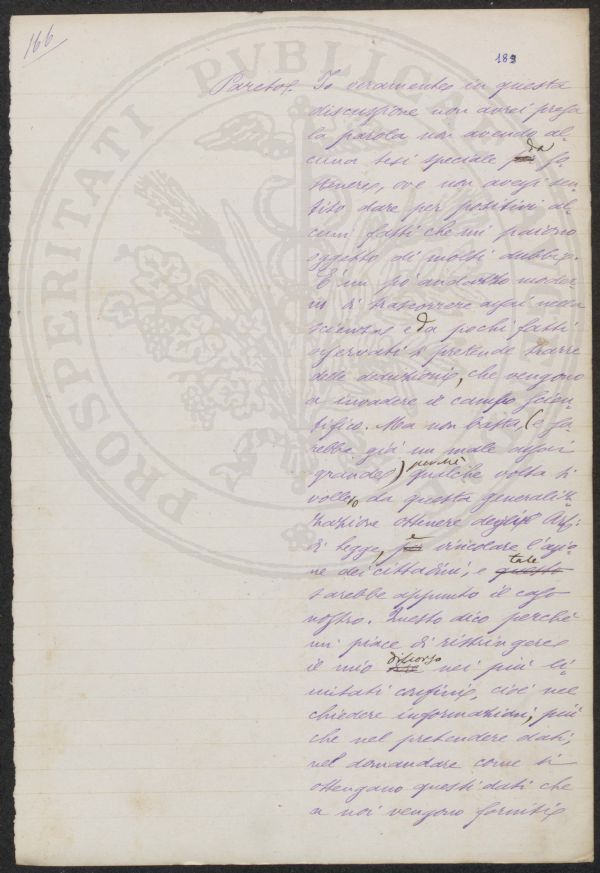 166
189
Pareto. Io veramente in questa
discussione non avrei presa
la parola non avendo al-
cuna tesi speciale da so-
stenere, ove non avessi sen-
tito dare per positivi al-
cuni fatti che mi paiono
soggetto di molti dubbi.
È un po' andazzo moder
no di trascorrere assai nella
scienza e da pochi fatti
osservati si pretende trarre
delle deduzioni, che vengono
a invadere il campo scien-
tifico. Ma non basta, (e sa
rebbe già un male assai
grande) perchè qualche volta si
volle, da questa generaliz-
zazione ottenere degli Arti.
di legge, e vincolare l'azio
ne dei cittadini, e tale
sarebbe appunto il caso
nostro. Questo dico perchè
mi piace di ristringere
il mio discorso nei più li-
mitati confini, cioè nel
chiedere informazioni, più
che nel pretendere dati,
nel domandare come si
ottengano questi dati che
a noi vengono forniti
PROSPERITATI PVBLICAE